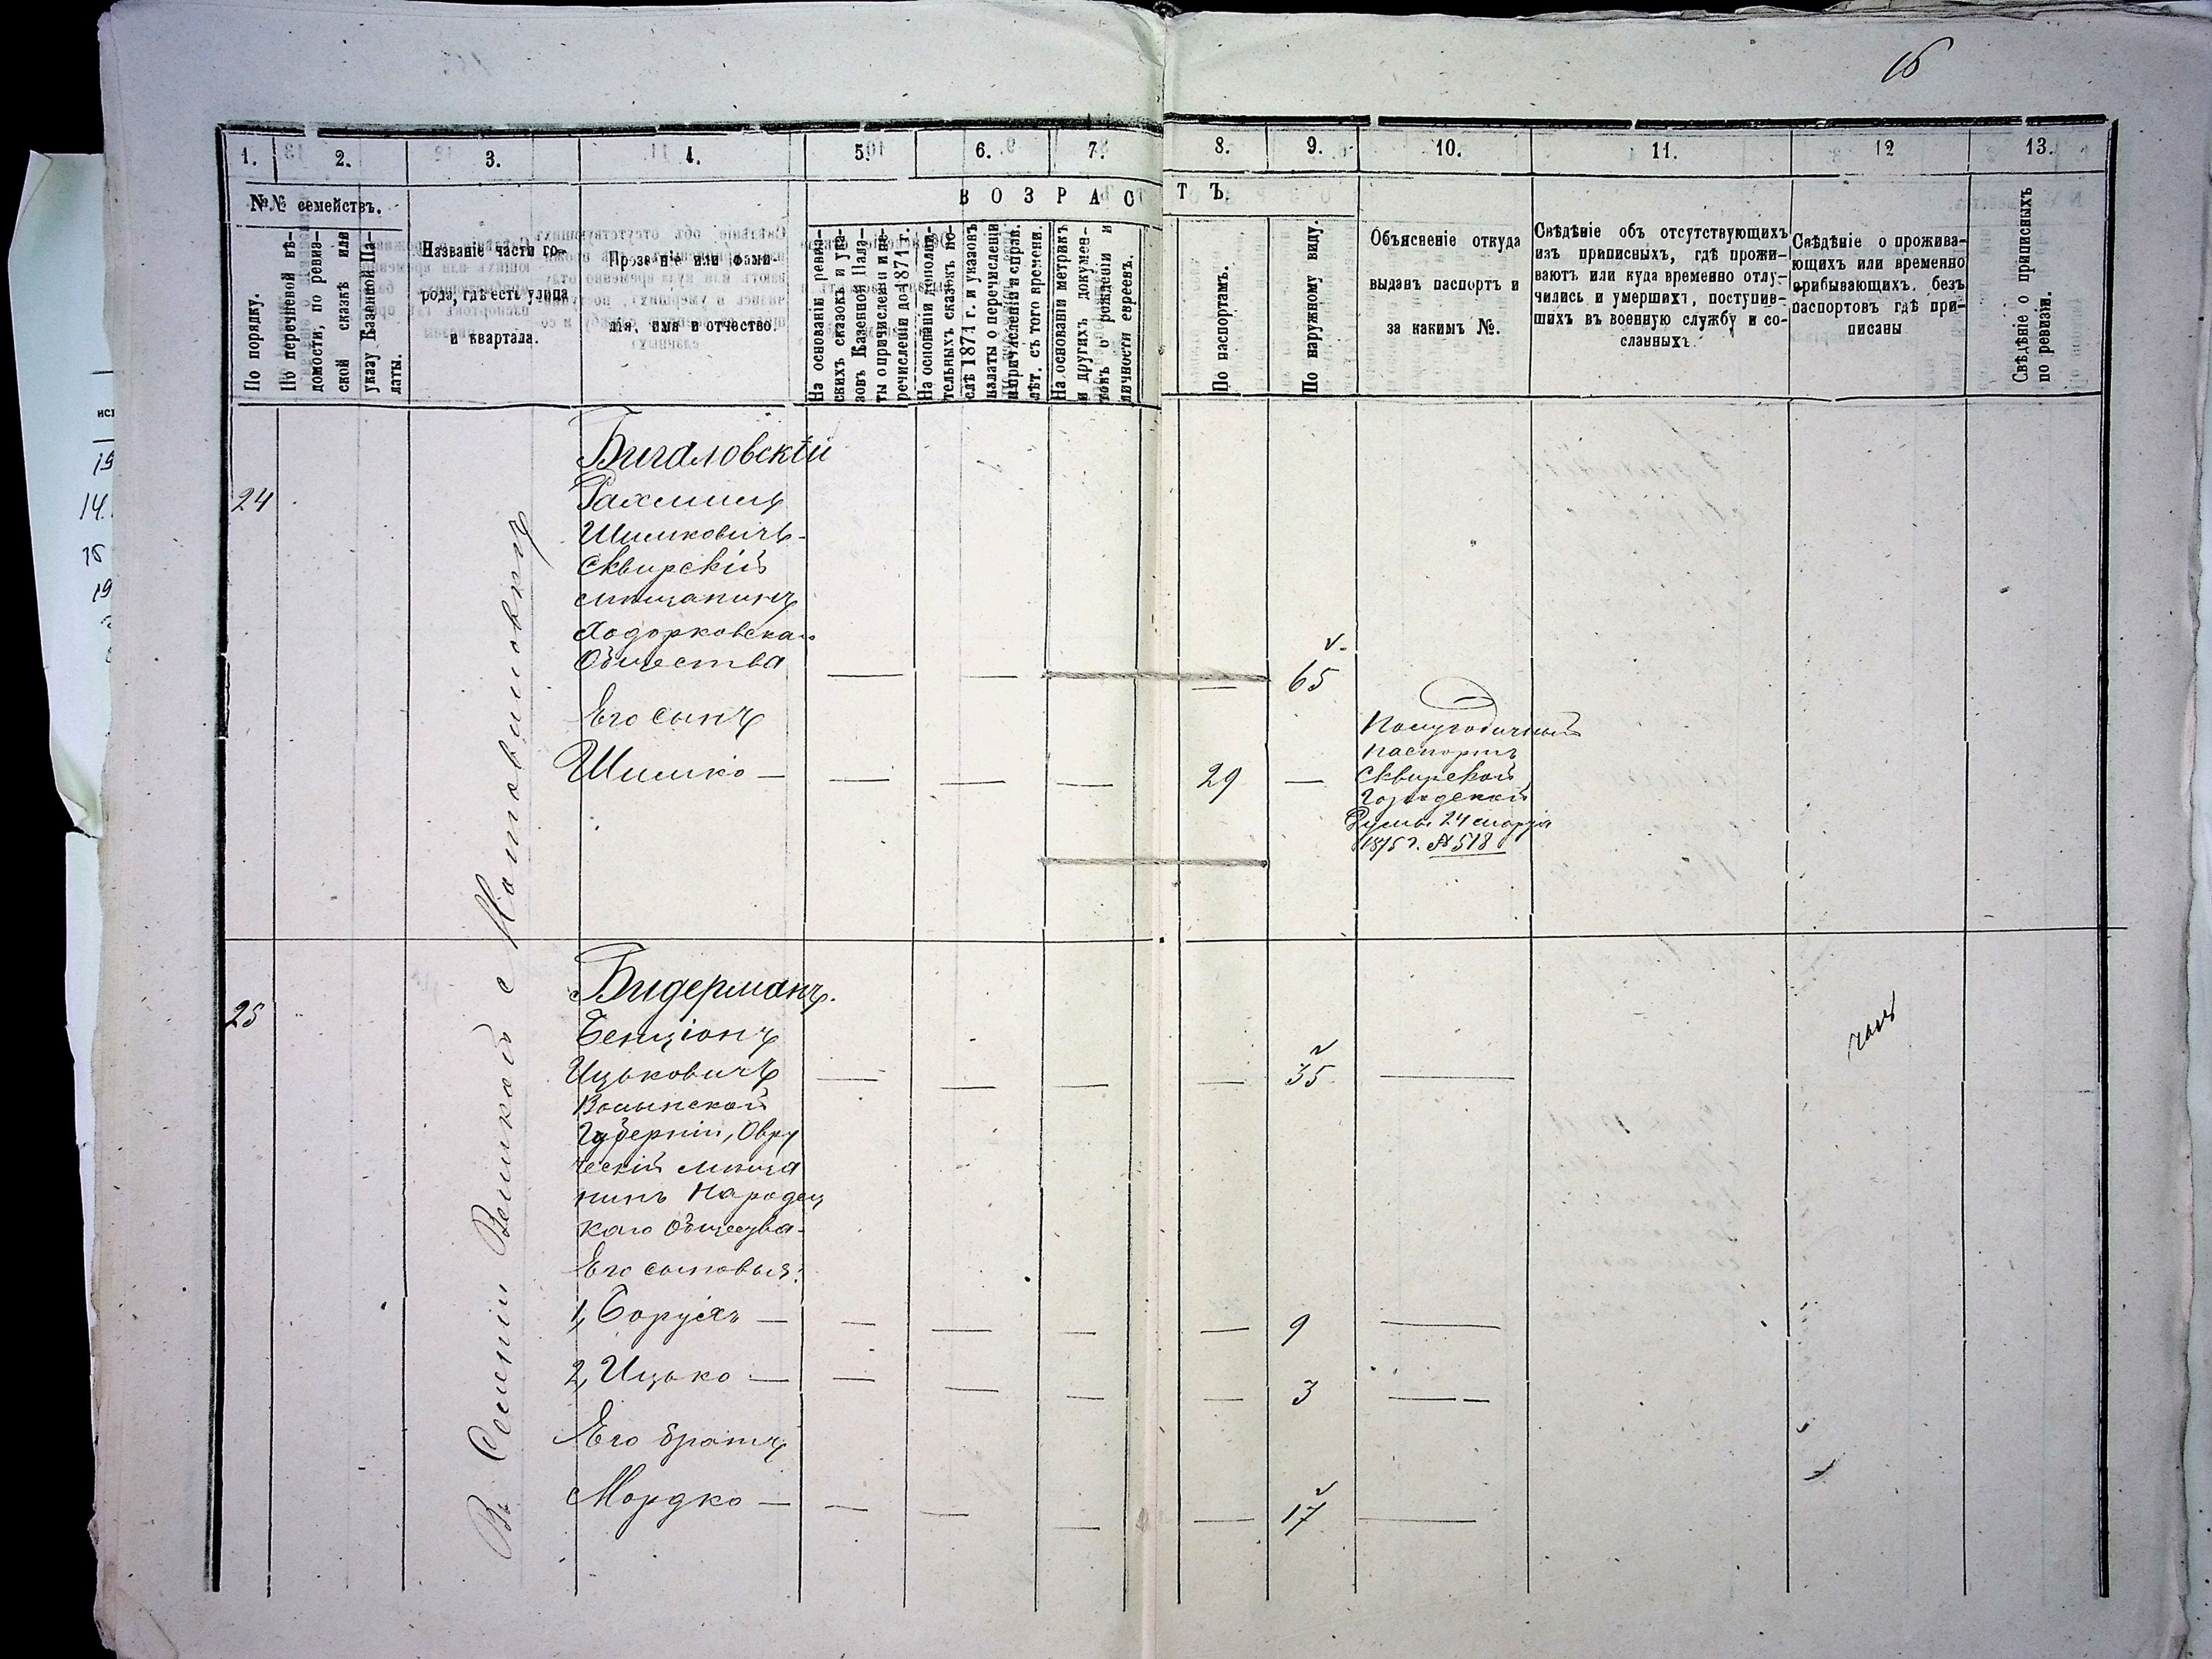 16
1.
2.
3.
4.
5.
6.
7.
8.
9.
10.
11.
12
13.
№№ семействъ.
По порядку.
По перечневой вѣ-
домости, по ревиз-
ской сказкѣ или
указу Казенной Па-
латы.
Названіе части го-
рода, гдѣ есть улица
и квартала.
Прозваніе или фами-
лія, имя и отчество.
ВОЗРАСТЪ.
На основаніи ревиз-
скихъ сказокъ и ука-
зовъ Казенной Пала-
ты о причисленіи и пе-
речисленіи до 1871 г.
На основаніи дополни-
тельныхъ сказокъ по-
слѣ 1871 г. и указовъ
палаты о перечисленіи
и причисленіи и справ.
лѣт. съ того времени.
На основаніи метрикъ
и другихъ докумен-
товъ о рожденіи и
личности евреевъ.
По паспортамъ.
По наружному виду.
Объясненіе откуда
выданъ паспортъ и
за какимъ №.
Свѣдѣніе объ отсутствующихъ
изъ приписныхъ, гдѣ прожи-
ваютъ или куда временно отлу-
чились и умершихъ, поступив-
шихъ въ военную службу и со-
сланныхъ.
Свѣдѣніе о прожива-
ющихъ или временно
прибывающихъ, безъ
паспортовъ гдѣ при-
писаны
Свѣдѣніе о приписныхъ
по ревизіи.
Въ Селеніи Великой с Мотовиловкѣ
24
Бигаловскій
Рахмиль
Шимковичъ-
Сквирскій
мѣщанинъ
Ходорковскаго
Общества
65
Его сынъ
Шимко —
29
Полугодичный
паспортъ
Сквирской
Городской
Думы 24 марта
1875 г. № 518
25
Бидерманъ.
Бенціонъ
Ицьковичъ
35
Волынской
Губерніи, Овру
ческій мѣща
нинъ Народиц
каго Общества-
Его сыновья:
1, Борухъ —
9
2, Ицько —
3
Его братъ
Мордко —
17